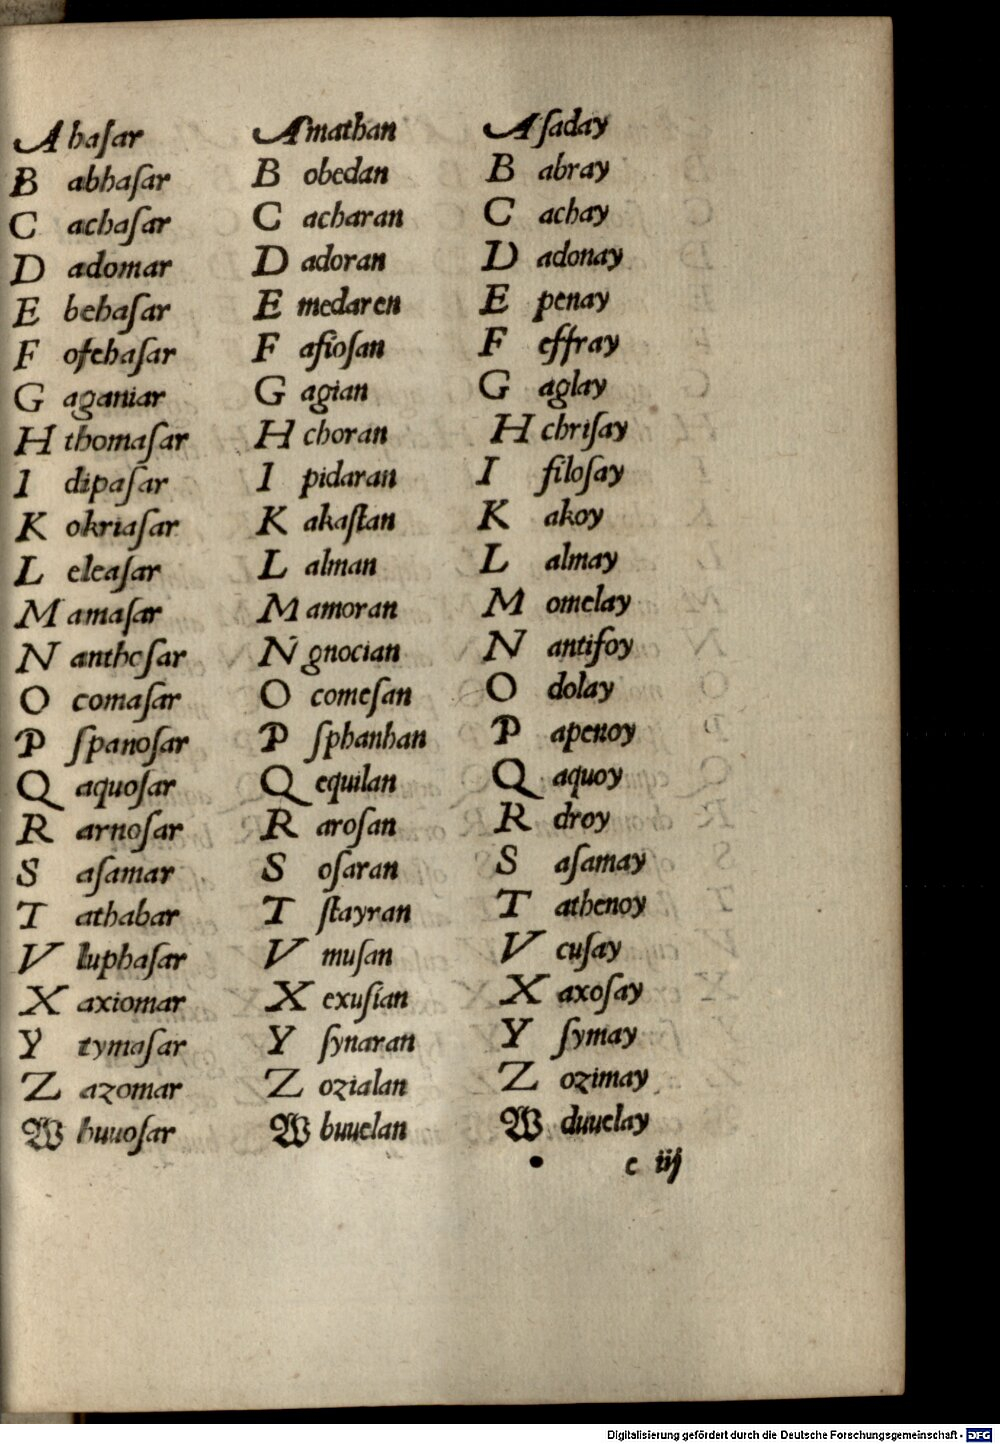 A haſar A mathan A ſaday
B abhaſar B obedan B abray
C achaſar C acharan C achay
D adomar D adoran D adonay
E behaſar E medaren E penay
F ofehaſar F afioſan F effray
G aganiar G agian G aglay
H thomaſar H choran H chriſay
I dipaſar I pidaran I filoſay
K okriaſar K akaſtan K akoy
L eleaſar L alman L almay
M amaſar M amoran M omelay
N antheſar N gnocian N antifoy
O comaſar O comeſan O dolay
P ſpanoſar P ſphanhan P apenoy
Q aquoſar Q equilan Q aquoy
R arnoſar R aroſan R droy
S aſamar S oſaran S aſamay
T athabar T ſtayran T athenoy
V luphaſar V muſan V cuſay
X axiomar X exuſian X axoſay
Y tymaſar Y ſynaran Y ſymay
Z azomar Z ozialan Z ozimay
W huuoſar W buuelan W duuelay
e iij
Digitalisierung gefördert durch die Deutsche Forschungsgemeinschaft - DFG